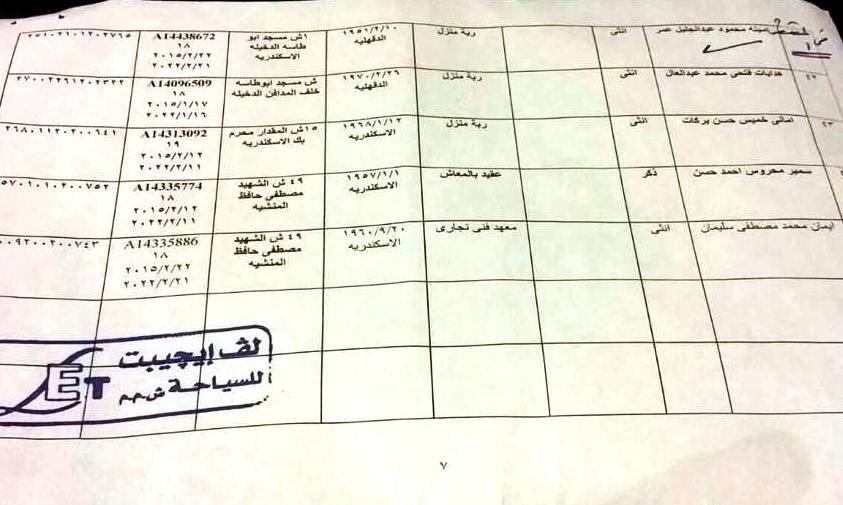 امينه محمود عبدالجليل عمر
انثى
ربة منزل
١٩٥١/٢/١٠
الدقهليه
١ش مسجد ابو
طاسه الدخيله
الاسكندريه
A14438672
١٨
٢٠١٥/٢/٢٢
٢٠٢٢/٢/٢١
٢٥١٠٢١٠١٢٠٢٧٦٥
٤٢
هدايات فتحى محمد عبدالعال
انثى
ربة منزل
١٩٧٠/٢/٢٦
الدقهليه
ش مسجد ابوطاسه
خلف المدافن الدخيله
A14096509
١٨
٢٠١٥/١/١٧
٢٠٢٢/١/١٦
٢٧٠٠٢٢٦١٢٠٢٣٢٢
٤٣
امانى خميس حسن بركات
انثى
ربة منزل
١٩٦٨/١/١٢
الاسكندريه
١٥ش المقدار محرم
بك الاسكندريه
A14313092
١٩
٢٠١٥/٢/١٢
٢٠٢٢/٢/١١
٢٦٨٠١١٢٠٢٠٠٦٤١
سمير محروس احمد حسن
ذكر
عقيد بالمعاش
١٩٥٧/١/١
الاسكندريه
٤٩ ش الشهيد
مصطفى حافظ
المنشيه
A14335774
١٨
٢٠١٥/٢/١٢
٢٠٢٢/٢/١١
٥٧٠١٠١٠٢٠٠٧٥٢
ايمان محمد مصطفى سليمان
انثى
معهد فنى تجارى
١٩٦٠/٩/٢٠
الاسكندريه
٤٩ ش الشهيد
مصطفى حافظ
المنشيه
A14335886
١٨
٢٠١٥/٢/٢٢
٢٠٢٢/٢/٢١
٠٠٩٢٠٠٢٠٠٧٤٣
لف إيجيبت
للسياحة ش.م.م
ET
٧